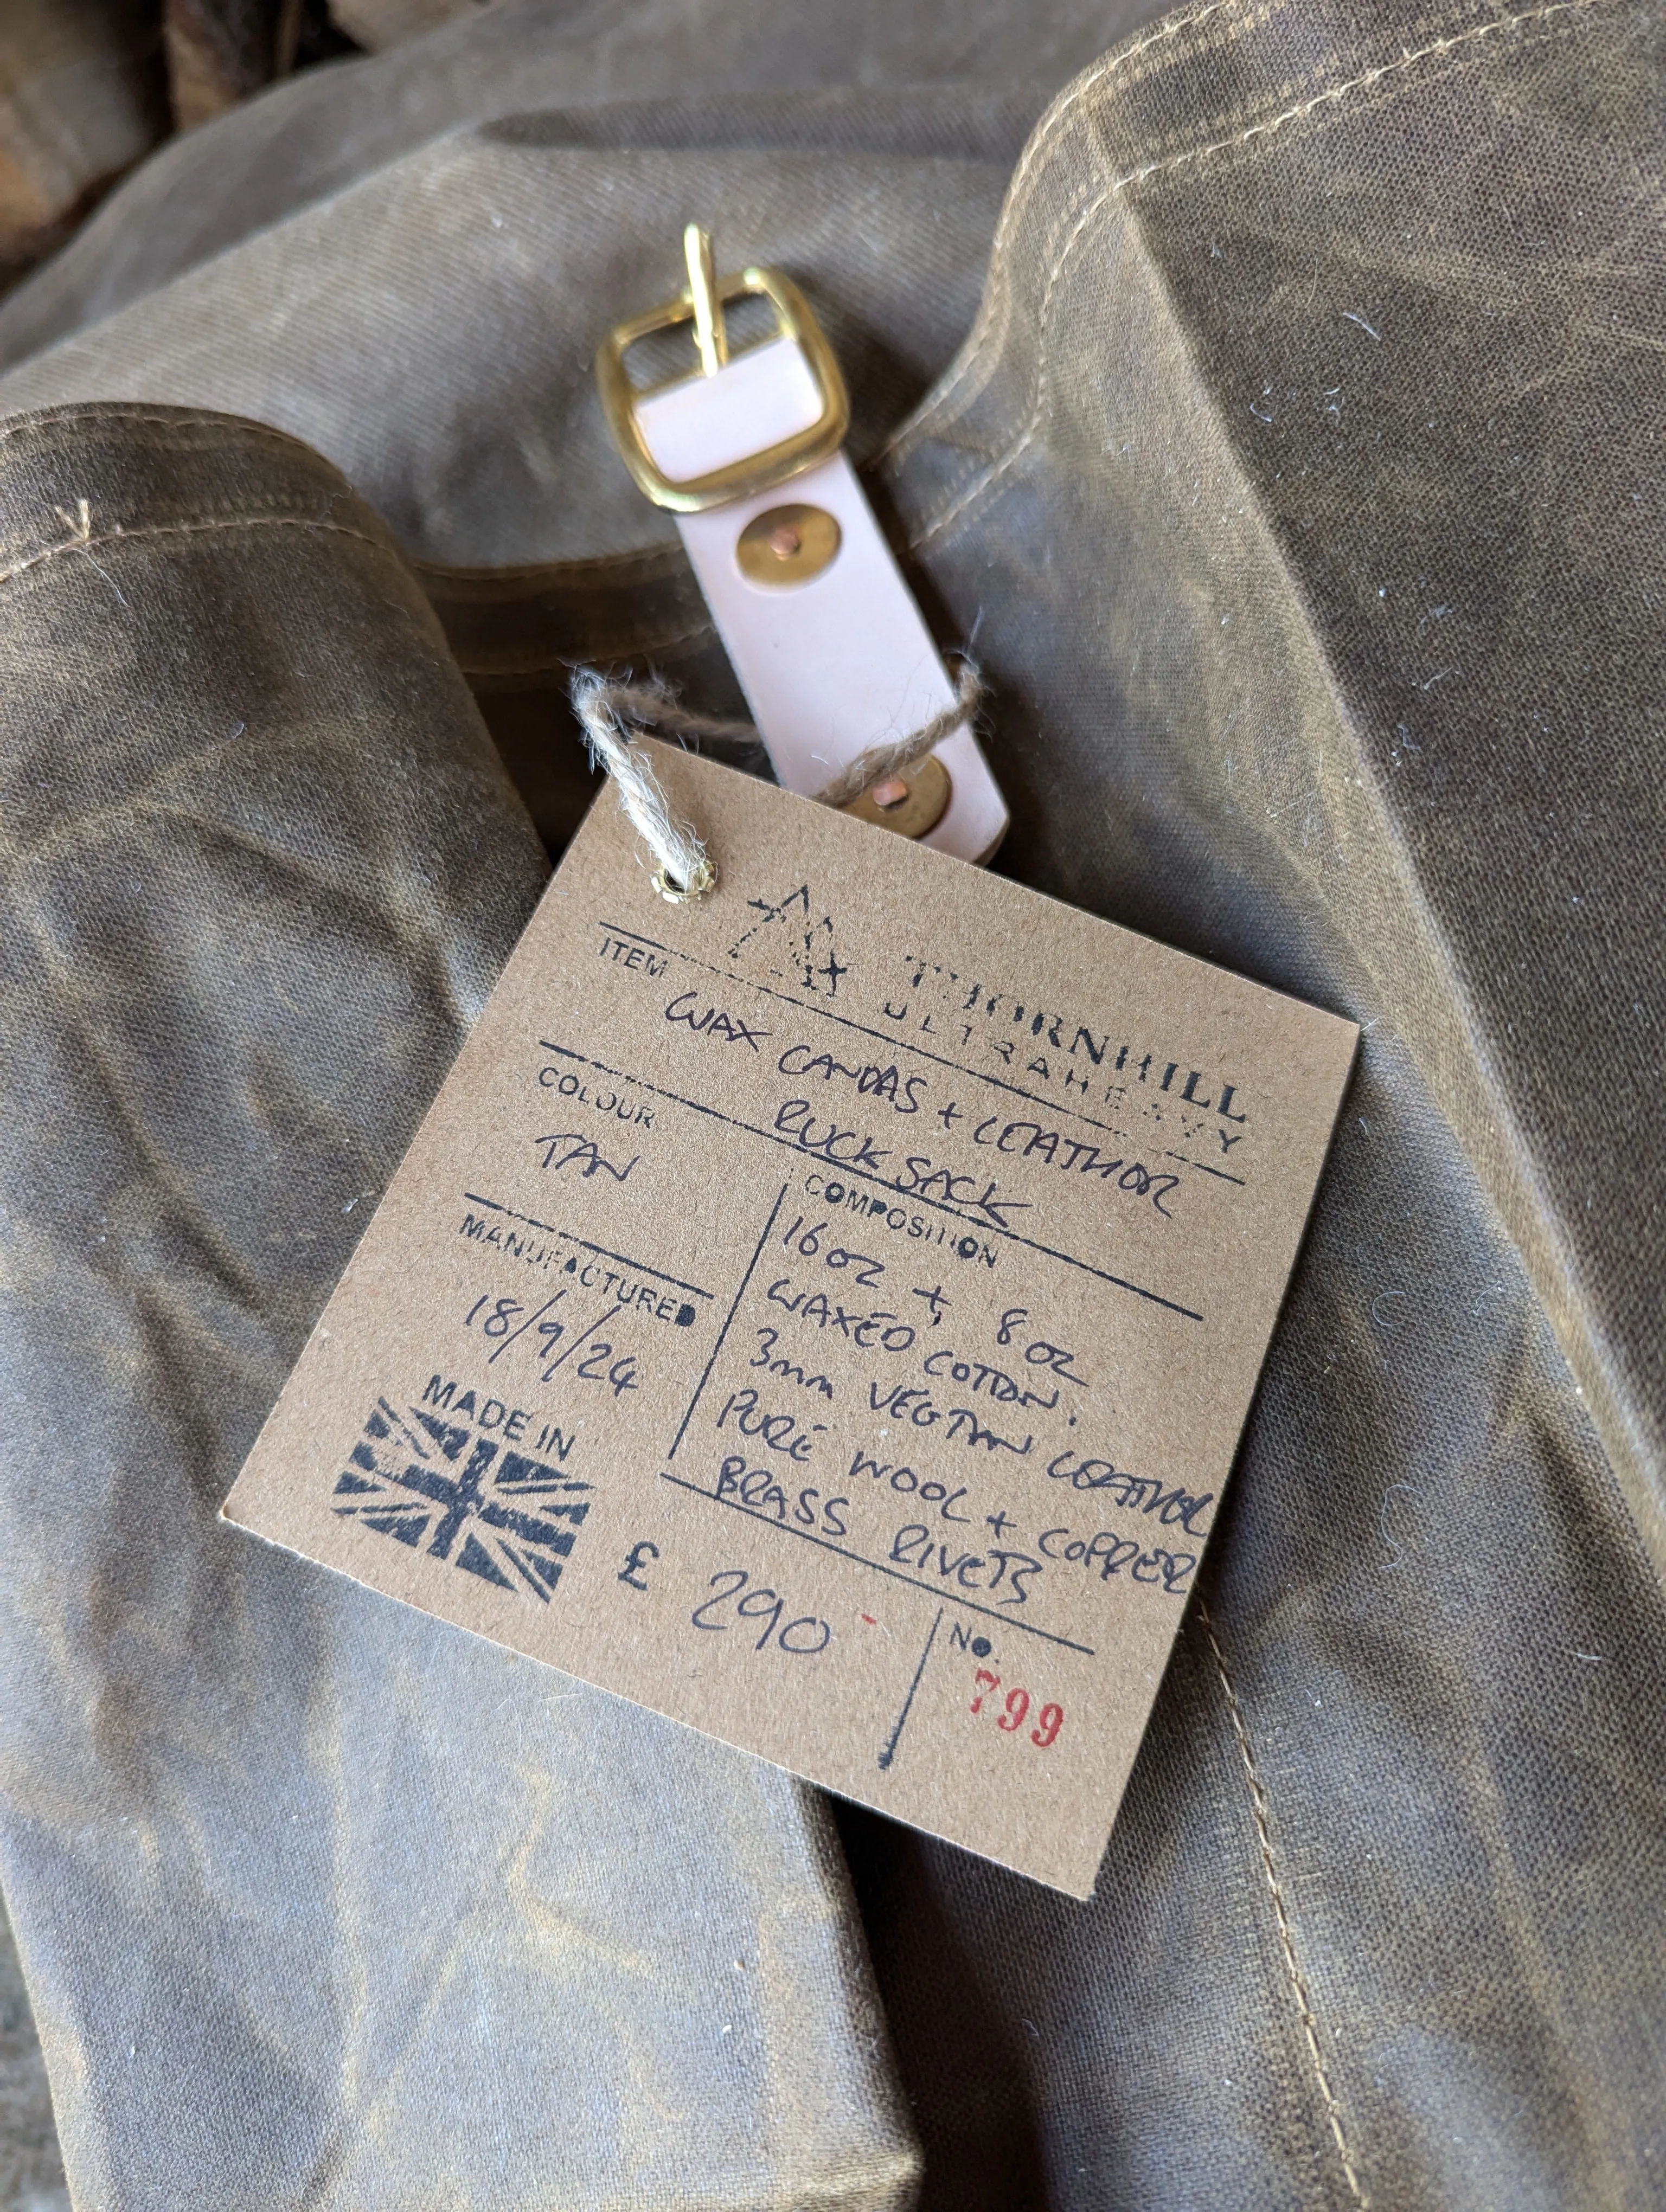 THORNHILL
ULTRAHEAVY
ITEM
WAX CANVAS + LEATHER
RUCK SACK
COLOUR
TAN
COMPOSITION
16oz + 8oz
WAXED COTTON.
3mm VEGTAN LEATHER
PURE WOOL + COPPER
BRASS RIVETS
MANUFACTURED
18/9/24
MADE IN
£ 290 -
No.
799